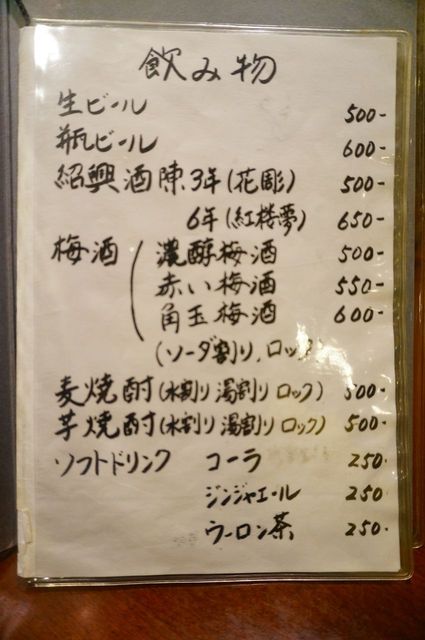 飲み物
生ビール 500-
瓶ビール 600-
紹興酒 陳3年(花彫) 500-
6年(紅楼夢) 650-
梅酒 ( 濃醇梅酒 500-
赤い梅酒 550-
角玉梅酒 600-
(ソーダ割り、ロック)
麦焼酎(水割り 湯割り ロック) 500-
芋焼酎(水割り 湯割り ロック) 500-
ソフトドリンク コーラ 250-
ジンジャエール 250
ウーロン茶 250-